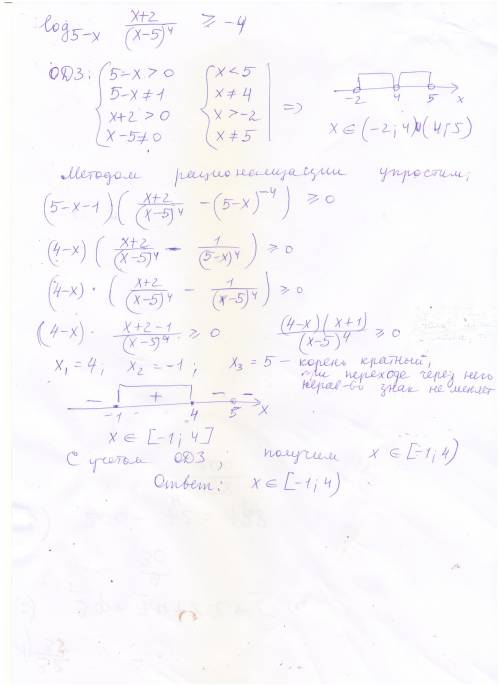 log₅₋ₓ (x+2)/(x-5)⁴ ≥ -4
ОДЗ: { 5-x>0 { x<5
5-x≠1 x≠4 =>
x+2>0 x>-2
x-5≠0 x≠5
-2 4 5 x
x∈(-2;4)∪(4;5)
Методом рационализации упростим;
(5-x-1)((x+2)/(x-5)⁴ - (5-x)⁻⁴) ≥ 0
(4-x)((x+2)/(x-5)⁴ - 1/(5-x)⁴) ≥ 0
(4-x)·((x+2)/(x-5)⁴ - 1/(x-5)⁴) ≥ 0
(4-x)· (x+2-1)/(x-5)⁴ ≥ 0 (4-x)(x+1)/(x-5)⁴ ≥ 0
x₁=4, x₂=-1; x₃=5 - корень кратный,
при переходе через него
нерав-во знак не меняет
- + - -
-1 4 5 x
x∈[-1;4]
С учетом ОДЗ, получим x∈[-1;4)
Ответ: x∈[-1;4)